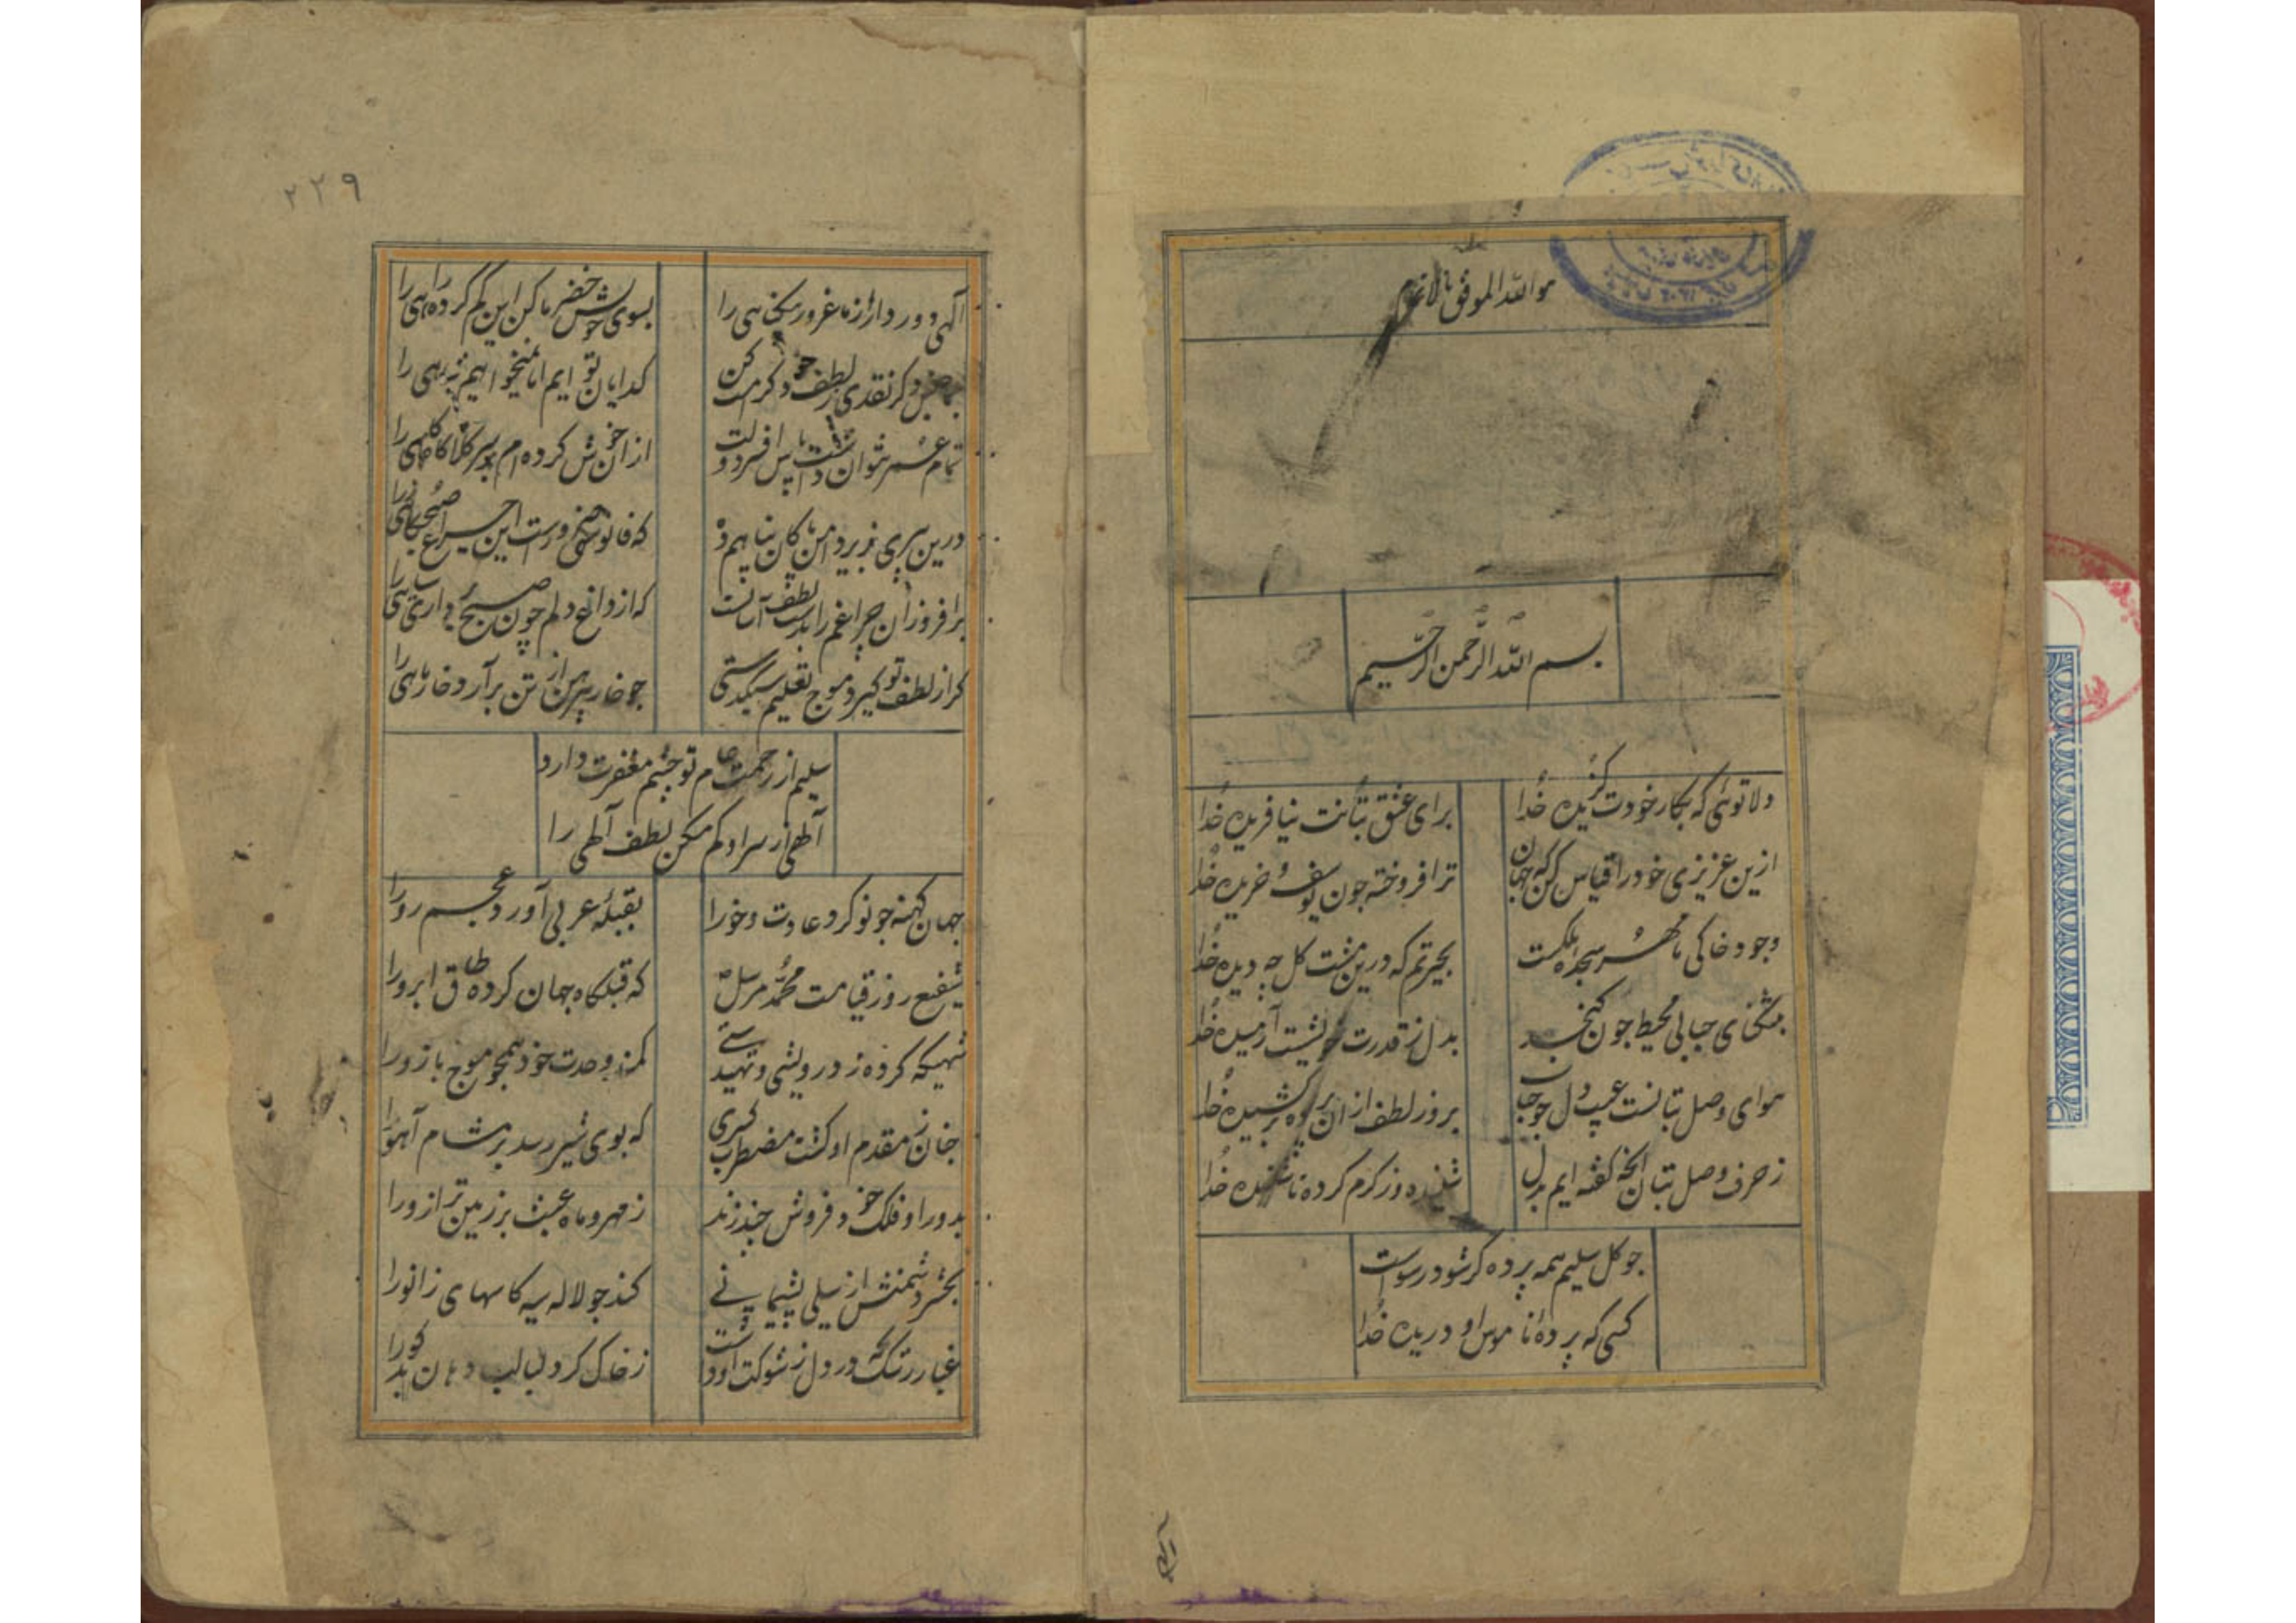 هو الله الموفق بالاتمام
بسم الله الرحمن الرحیم
دلا توئی که بکار خودت گزیده خدا
برای عشق بتانت نیافریده خدا
ازین عزیزی خود را قیاس کن که جهان
ترا فروخته چون یوسف خریده خدا
وجود خاکی ما مهر سجده ملکست
بحیرتم که درین مشت کل چه دیده خدا
بتنکنای حبابی محیط چون کنجد
بدل ز قدرت خویشت آرمیده خدا
هوای وصل بتانست عیب دل چو حجاب
بروز لطف ازان پرده برکشیده خدا
ز حرف وصل بتان انچه کفته ایم بدل
شنیده وز کرم کرده ناشنیده خدا
چو کل سلیم همه پرده کر شود رسواست
کسی که پرده ناموس او دریده خدا
۲۲۹
آلهی دور دار از ما غرور کج کلاهی را
بسوی خویش خضر ما کن این کم کرده راهی را
کدایان تو ایم اما نمیخواهیم شاهی را
تمام عمر نتوان داشت پاس افسر دولت
از ان خش کرده ام بر سر کلاه کاهکاهی را
درین پیری بزیر دامن کان پناهم ده
که فانوسی ضرورست این چراغ صبحکاهی را
برافروز آن چراغم را بدست لطف آسانت
که از داغ دلم چون صبح برداری سیاهی را
کر از لطف تو کیرد موج تعلیم سبکدستی
چو خار پیرهن از تن برآرد خار ماهی را
سلیم از رحمت عام تو چشم مغفرت دارد
آلهی از سر او کم مکن لطف آلهی را
جهان کهنه چو نو کرد عادت و خو را
بقبله عربی آورد عجم رو را
شفیع روز قیامت محمد مرسل
که قبله‌کاه جهان کرده طاق ابرو را
شهیکه کرده ز درویشی و تهیدستی
کمند وحدت خود همچو موج بازو را
چنان ز مقدم او کشت مضطرب کسری
که بوی شیر رسد بر مشام آهو را
بدور او فلک خود فروش چند زند
ز مهر و ماه عبث بر زمین ترازو را
بحشر دشمنش از سیلی پشیمانی
کند چو لاله سیه کاسهای زانو را
غبار رشک که در دل ز شوکت او داشت
ز خاک کرد لبالب دهان بدکو را